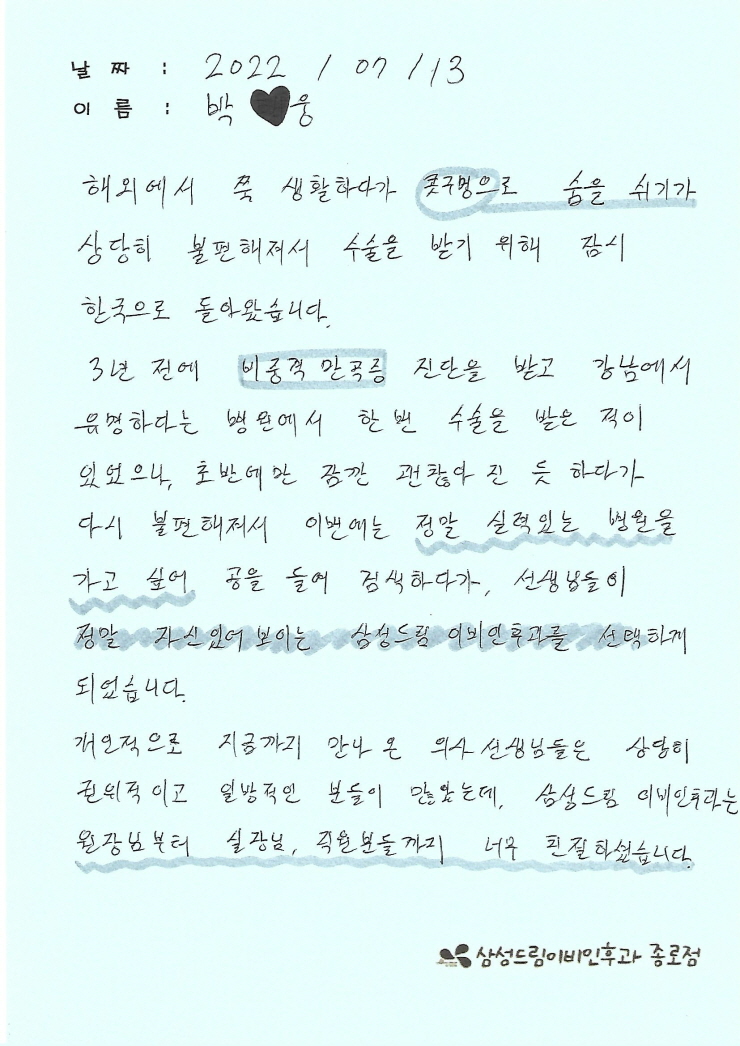 날 짜 : 2022 / 07 / 13
이 름 : 박 ♥웅
해외에서 쭉 생활하다가 콧구멍으로 숨을 쉬기가
상당히 불편해져서 수술을 받기 위해 잠시
한국으로 돌아왔습니다.
3년 전에 비중격 만곡증 진단을 받고 강남에서
유명하다는 병원에서 한 번 수술을 받은 적이
있었으나, 초반에만 잠깐 괜찮아 진 듯 하다가
다시 불편해져서 이번에는 정말 실력있는 병원을
가고 싶어 공을 들여 검색하다가, 선생님들이
정말 자신있어보이는 삼성드림 이비인후과를 선택하게
되었습니다.
개인적으로 지금까지 만나 온 의사 선생님들은 상당히
권위적이고 일방적인 분들이 많았는데, 삼성드림 이비인후과는
원장님부터 실장님, 직원분들까지 너무 친절하셨습니다.
삼성드림이비인후과 종로점